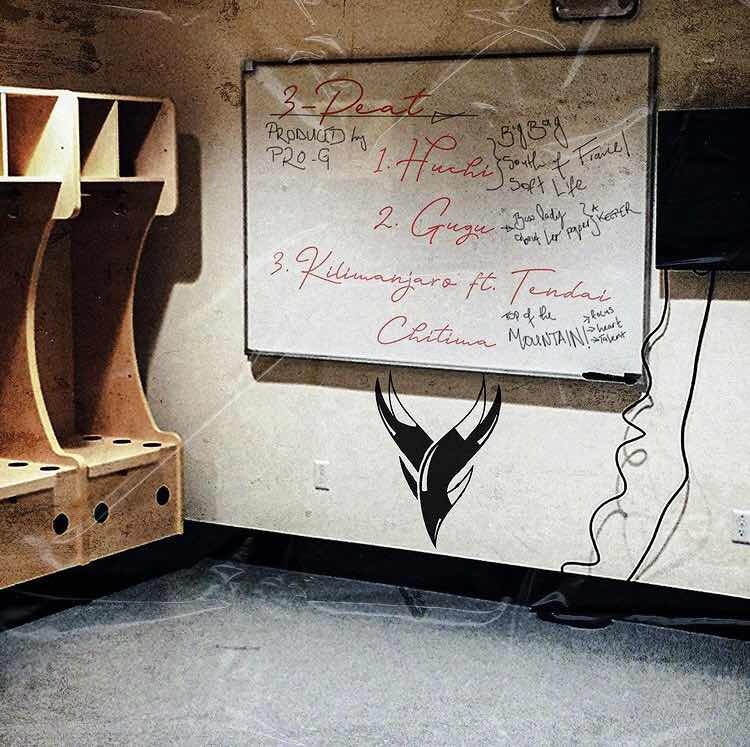 3-Peat
PRODUCED by
PRO-G
1. Huchi
Big Bag
South of France/
Soft Life
2. Gugu
Boss lady
about her paper
A
KEEPER
3. Kilimanjaro ft. Tendai
Chitima
Top of the
MOUNTAIN!
→ focus
→ heart
→ Talent